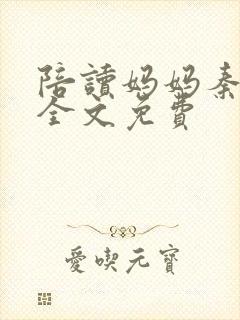 陪讀媽媽秦
全文免費
愛喫元寶